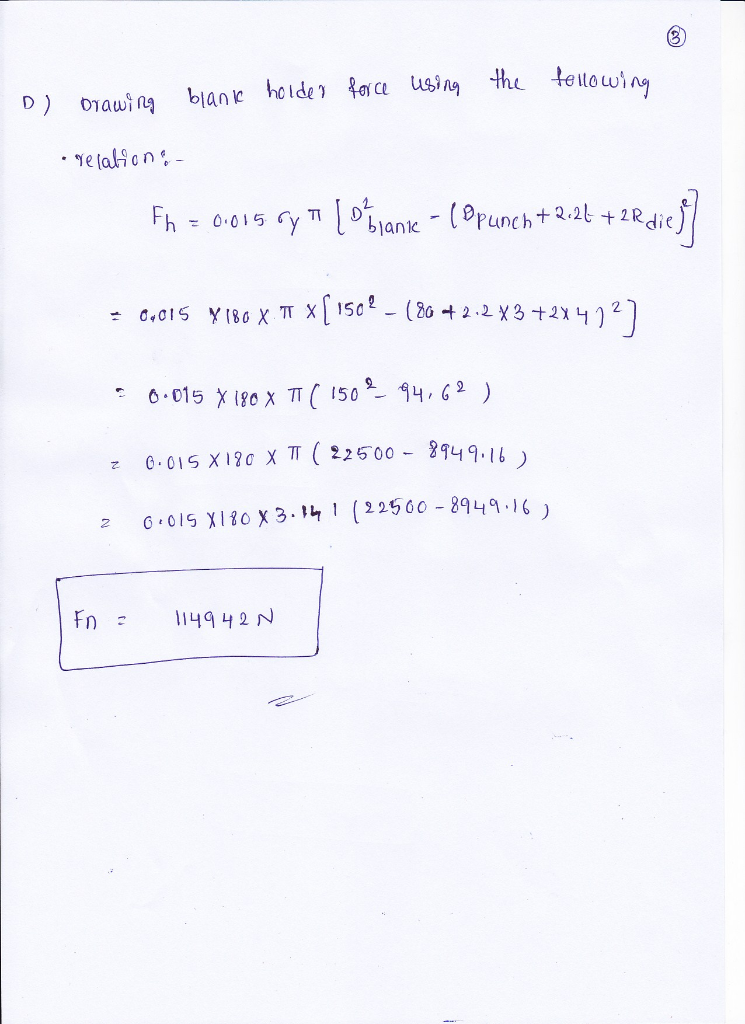 ③
D) Drawing blank holder force using the following
• relation :-
Fh = 0.015 σy π [D²blank - (Dpunch + 2.2t + 2Rdie)²]
= 0.015 X 180 X π X [150² - (80 + 2.2 X 3 + 2X4)²]
= 0.015 X 180 X π (150² - 94.6²)
= 0.015 X 180 X π (22500 - 8949.16)
= 0.015 X 180 X 3.141 (22500 - 8949.16)
Fn = 114942 N